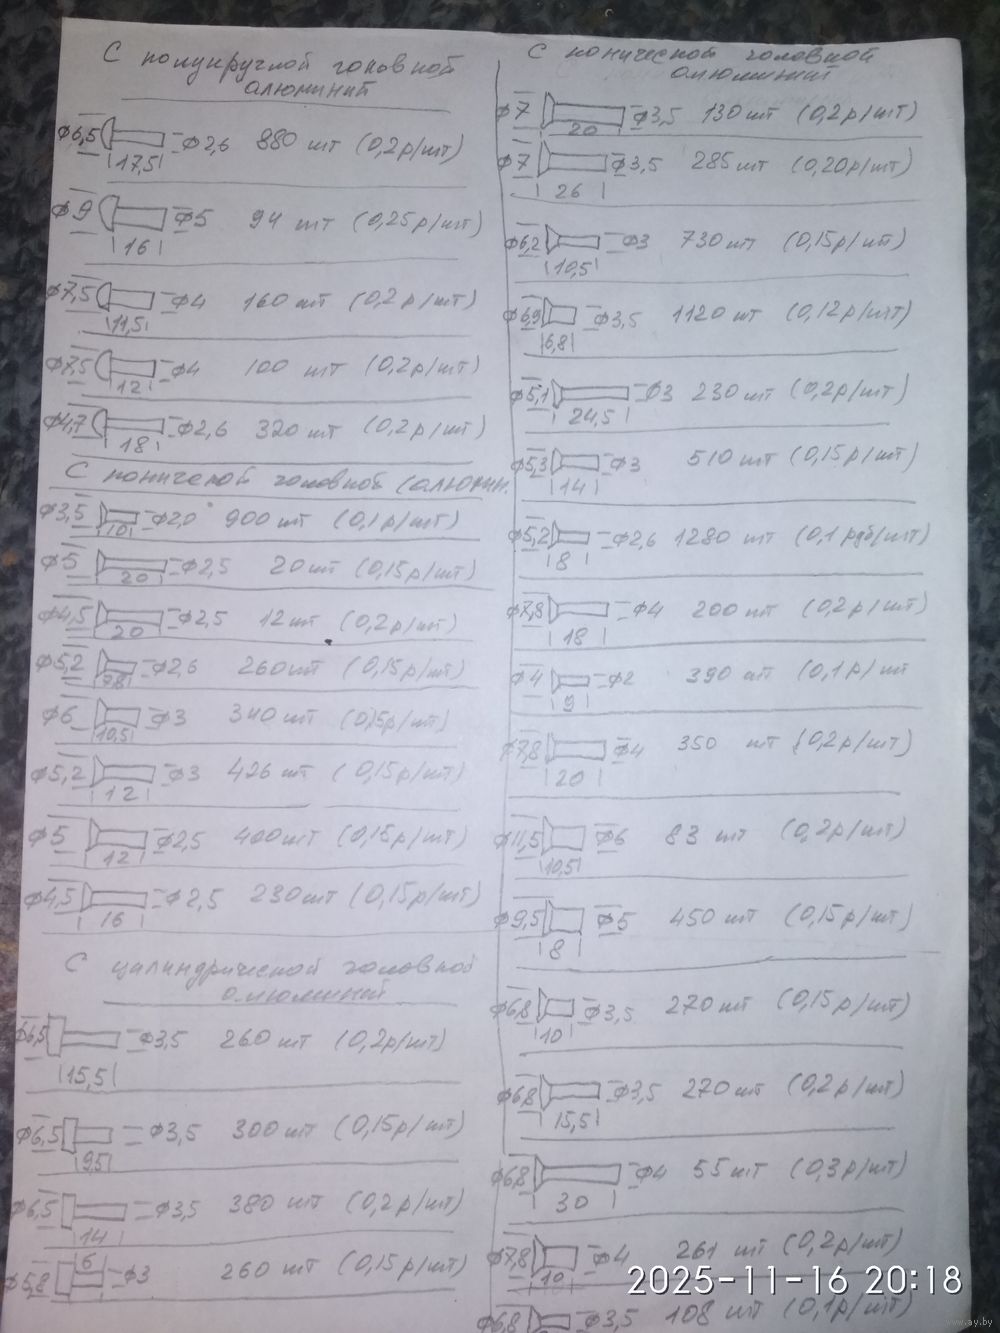 С полукруглой головкой
алюминий
ф6,5 ф2,6 880 шт (0,2р/шт)
17,5
ф9 ф5 94 шт (0,25р/шт)
16
ф7,5 ф4 160 шт (0,2р/шт)
11,5
ф7,5 ф4 100 шт (0,2р/шт)
12
ф4,7 ф2,6 320 шт (0,2р/шт)
18
С конической головкой (алюмин.
ф3,5 ф2,0 900 шт (0,1р/шт)
10
ф5 ф2,5 20шт (0,15р/шт)
20
ф4,5 ф2,5 12шт (0,2р/шт)
20
ф5,2 ф2,6 260шт (0,15р/шт)
7,8
ф6 ф3 340 шт (0,15р/шт)
10,5
ф5,2 ф3 426 шт (0,15р/шт)
12
ф5 ф2,5 400шт (0,15р/шт)
12
ф4,5 ф2,5 230шт (0,15р/шт)
16
С цилиндрической головкой
алюминий
ф6,5 ф3,5 260 шт (0,2р/шт)
15,5
ф6,5 ф3,5 300 шт (0,15р/шт)
9,5
ф6,5 ф3,5 380 шт (0,2р/шт)
14
6
ф5,8 ф3 260 шт (0,15р/шт)
С конической головкой
алюминий
ф7 ф3,5 130шт (0,2р/шт)
20
ф7 ф3,5 285шт (0,20р/шт)
26
ф6,2 ф3 730шт (0,15р/шт)
10,5
ф6,9 ф3,5 1120 шт (0,12р/шт)
6,8
ф5,1 ф3 230 шт (0,2р/шт)
24,5
ф5,3 ф3 510 шт (0,15р/шт)
14
ф5,2 ф2,6 1280 шт (0,1 руб/шт)
8
ф7,8 ф4 200 шт (0,2р/шт)
18
ф4 ф2 390 шт (0,1р/шт
9
ф7,8 ф4 350 шт (0,2р/шт)
20
ф11,5 ф6 83 шт (0,2р/шт)
10,5
ф9,5 ф5 450 шт (0,15р/шт)
8
ф6,8 ф3,5 270 шт (0,15р/шт)
10
ф6,8 ф3,5 270 шт (0,2р/шт)
15,5
ф6,8 ф4 55 шт (0,3р/шт)
30
ф7,8 ф4 261 шт (0,2р/шт)
10
ф6,8 ф3,5 108 шт (0,1р/шт)
2025-11-16 20:18
www.ay.by